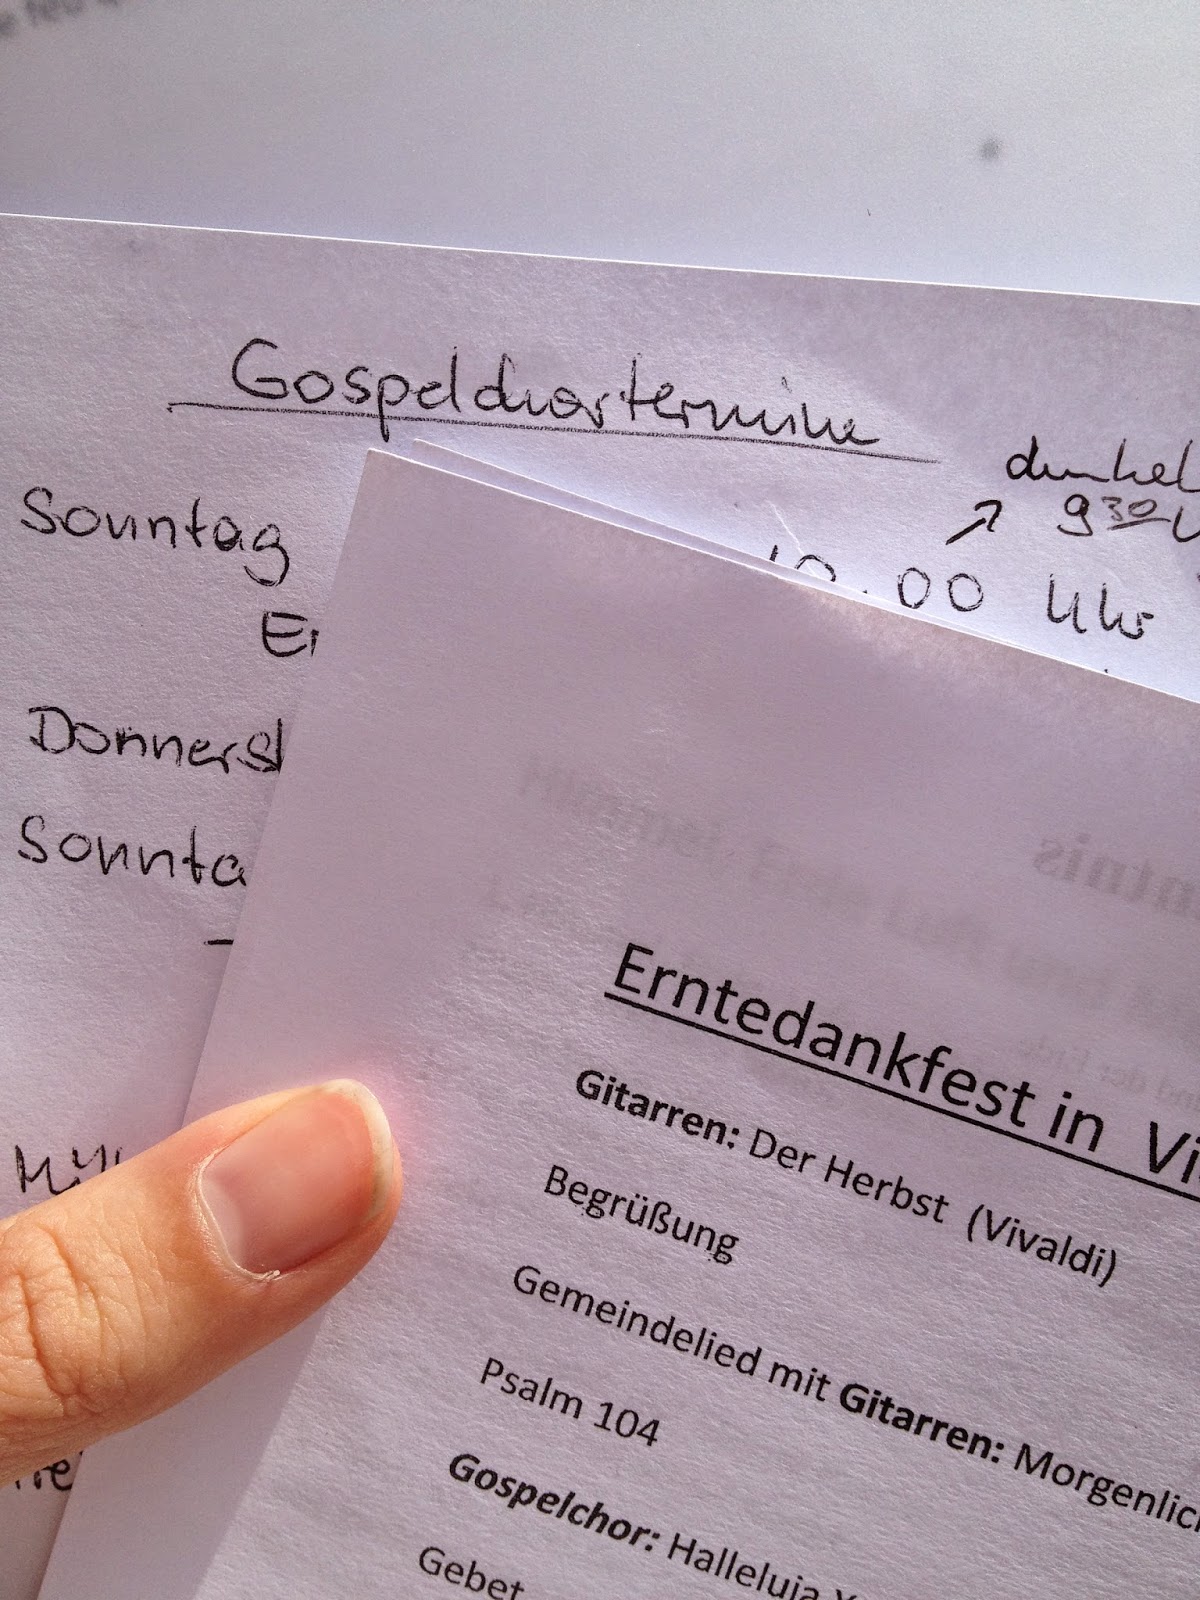 Gospelchortermine
dunkel
9 30 U
Sonntag 10.00 Uhr
Er
Donnerst
Sonnta
Erntedankfest in Vi
Gitarren: Der Herbst (Vivaldi)
Begrüßung
Gemeindelied mit Gitarren: Morgenlich
Psalm 104
Gospelchor: Halleluja
Gebet